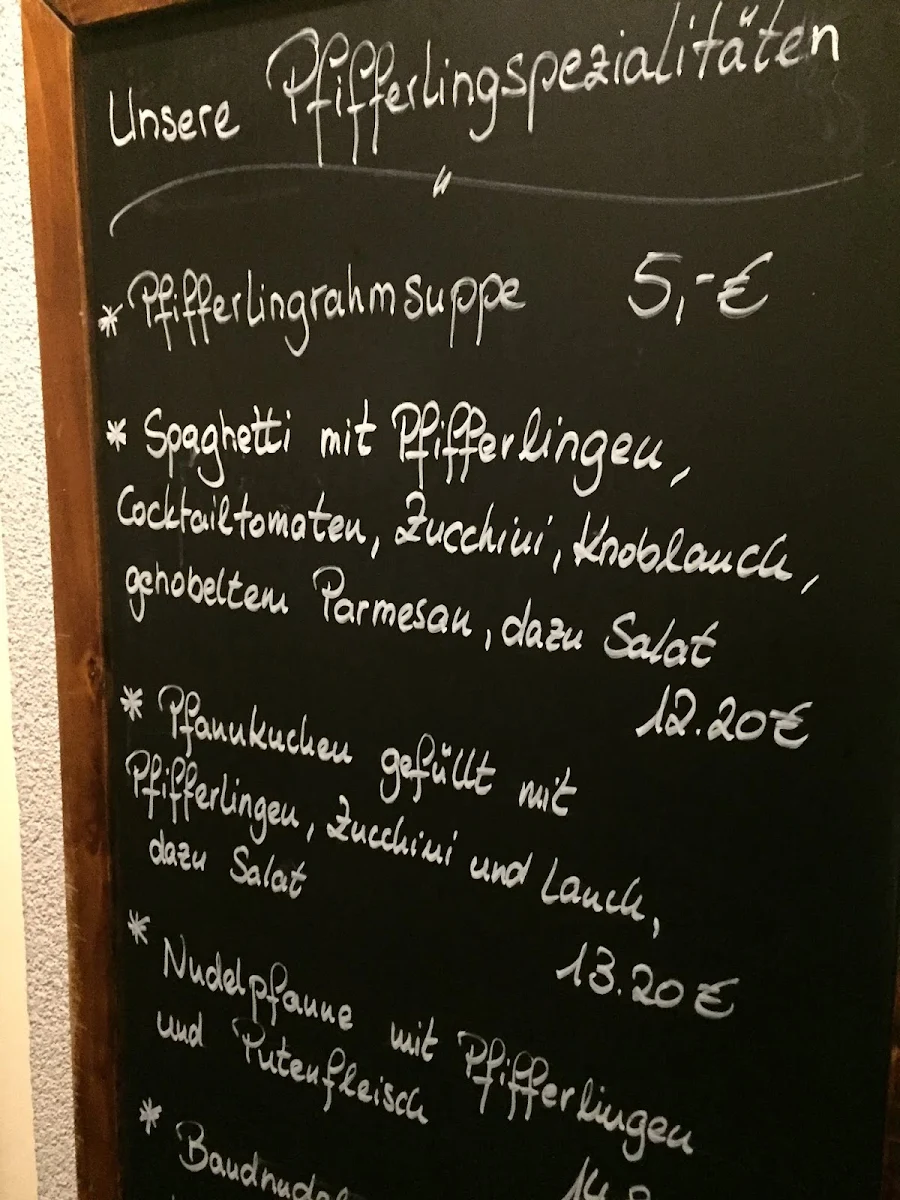 Unsere Pfifferlingspezialitäten
"
* Pfifferlingrahmsuppe 5,-€
* Spaghetti mit Pfifferlingen,
Cocktailtomaten, Zucchini, Knoblauch,
gehobeltem Parmesan, dazu Salat
12.20€
* Pfannkuchen gefüllt mit
Pfifferlingen, Zucchini und Lauch,
dazu Salat
13.20€
* Nudelpfanne mit Pfifferlingen
und Putenfleisch
*